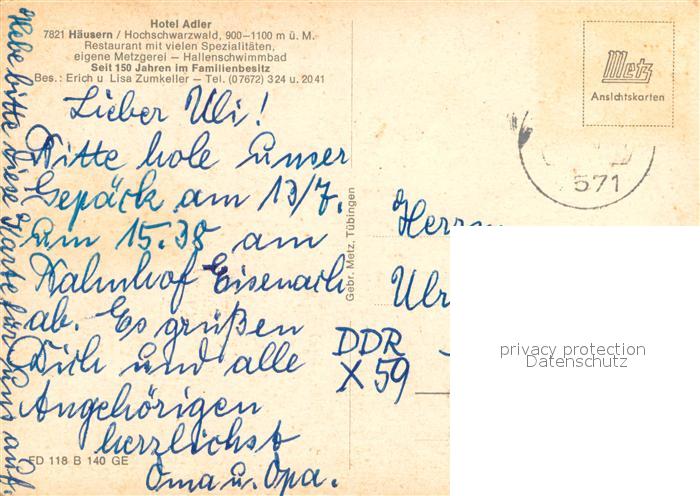 Hotel Adler
7821 Häusern / Hochschwarzwald, 900–1100 m ü. M.
Restaurant mit vielen Spezialitäten,
eigene Metzgerei – Hallenschwimmbad
Seit 150 Jahren im Familienbesitz
Bes.: Erich u Lisa Zumkeller – Tel. (07672) 324 u. 2041
Lieber Uli!
Bitte hole unser
Gepäck am 13/7.
um 15.38 am
Bahnhof Eisenach
ab. Es grüßen
Dich und alle
Angehörigen
herzlichst
Oma u. Opa.
Hebe bitte diese Karte für uns auf.
FD 118 B 140 GE
Gebr. Metz, Tübingen
Metz
Ansichtskarten
571
Herrn
Ulr
DDR
X 59
privacy protection
Datenschutz